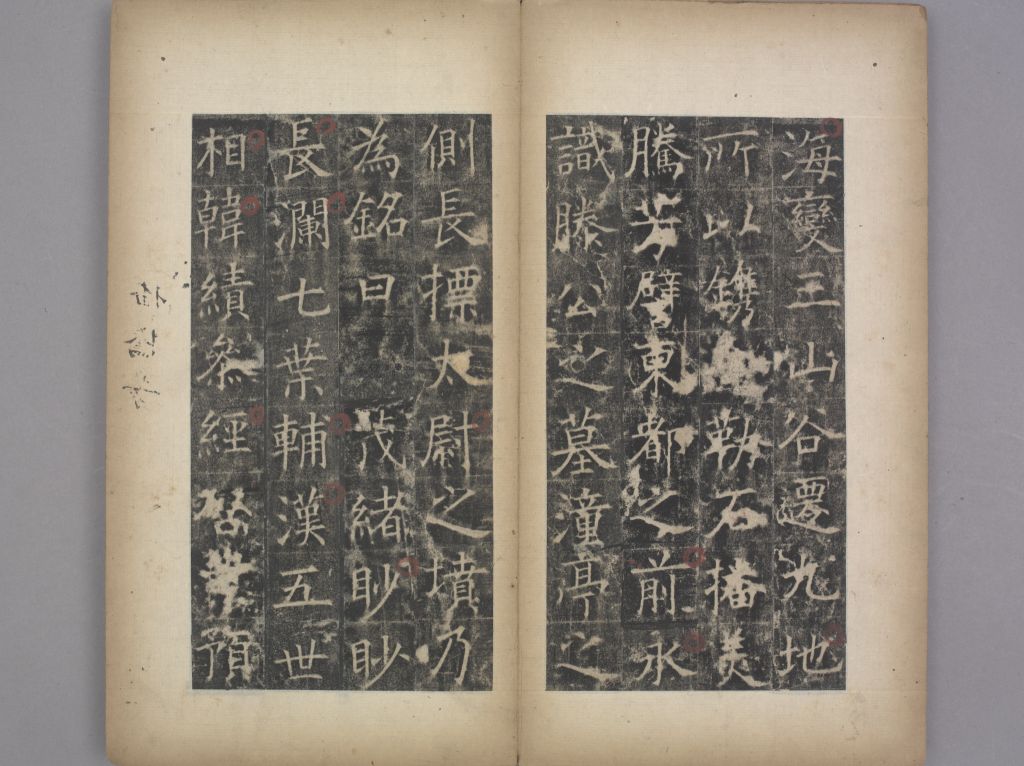 海變三山谷遷九地
所以鐫金勒石播美
騰芳東都之前永
識滕公之墓潼亭之
側長摽太尉之墳乃
為銘曰茂緒眇眇
長瀾七葉輔漢五世
相韓績叅經預